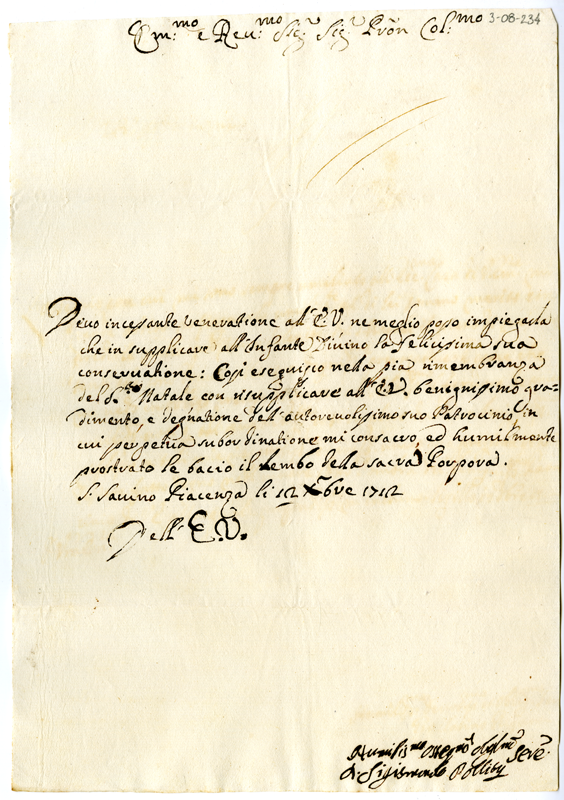 3-08-234
Em:mo e Rev:mo Sig.r Sig.r Prõn Col:mo
Devo incessante veneratione all' E.V. ne meglio posso impiegarla
che in supplicare all' Infante Divino la felicissima sua
conservatione: Così eseguisco nella pia rimembranza
del S.mo Natale con risupplicare all' E.V. benignissimo gra-
dimento, e degnatione dell' autorevolissimo suo Patrocinio, in
cui perpetua subordinatione mi consacro, ed humilmente
prostrato le bacio il Lembo della sacra Porpora.
S. Savino Piacenza li 12 Xbre 1712
Dell' E.V.
Humiliss.mo Serv.
D. Sigismondo